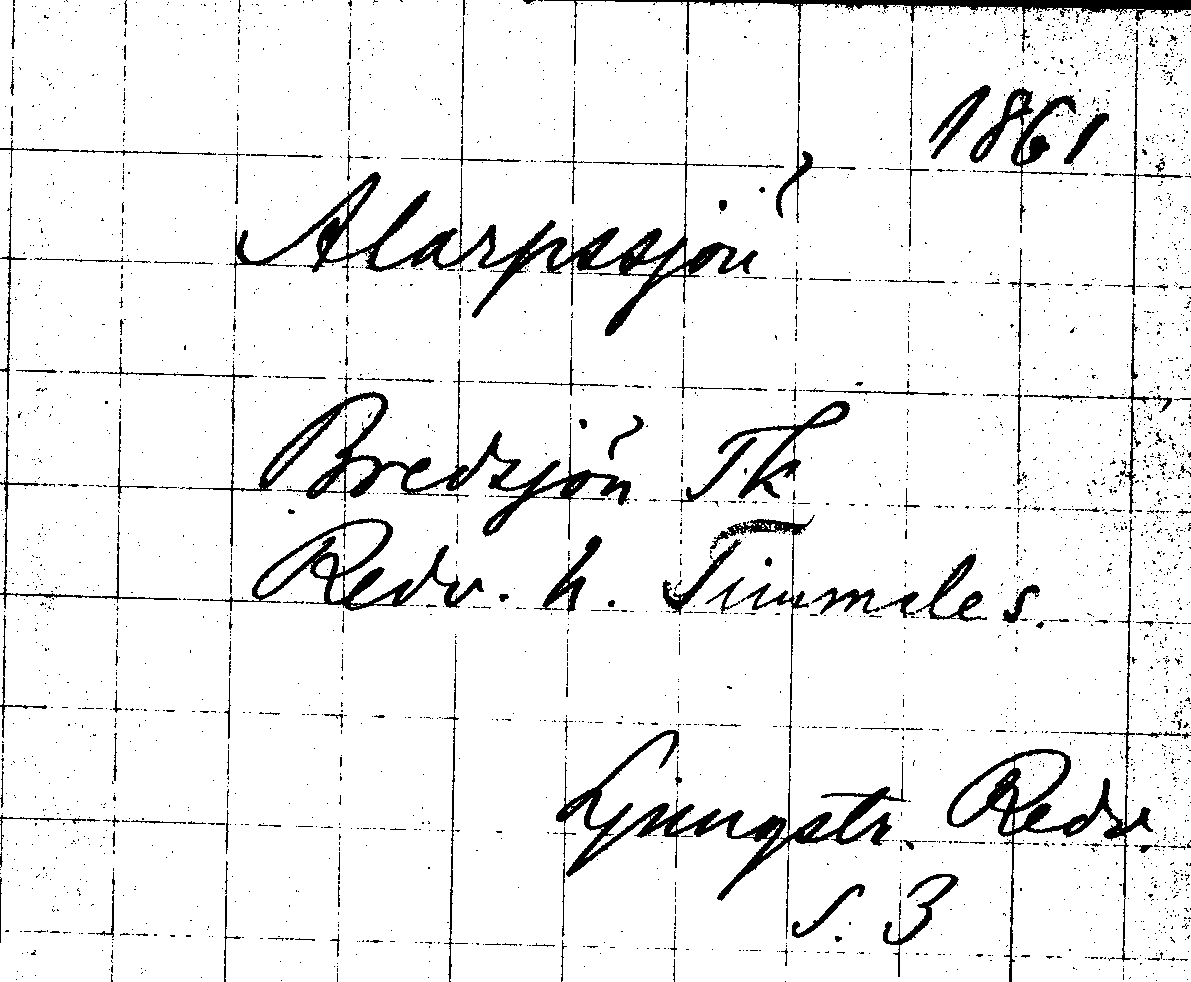 1861
Alarpssjön
Bredsjön Tk
Redv. h. Timmele s.
Ljungstr. Redv.
s. 3